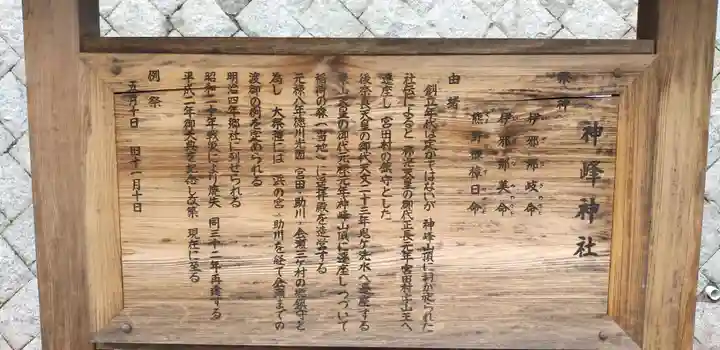 神峰神社
祭神
伊邪那岐命
伊邪那美命
熊野櫲樟日命
由緒
創立年代は定かではないが 神峰山頂に祠が祀られた
社伝によると 称光天皇の御代正長元年宮田村字山王へ
遷座し 宮田村の鎮守とした
後奈良天皇の御代大永二十三年鬼ヶ洗水へ遷座する
東山天皇の御代元禄元年神峰山頂に遷座しつづいて
稲荷の森(当地)に遥拝殿を造営する
元禄八年徳川光圀 宮田 助川 会瀬三ケ村の総鎮守と
為し 大祭礼には 浜の宮 助川を経て会瀬までの
渡御の例を定められる
明治四年郷社に列せられる
昭和二十年戦災により焼失 同三十二年再建する
平成二年御大典を記念し改築 現在に至る
例祭
五月十日 旧十一月十日